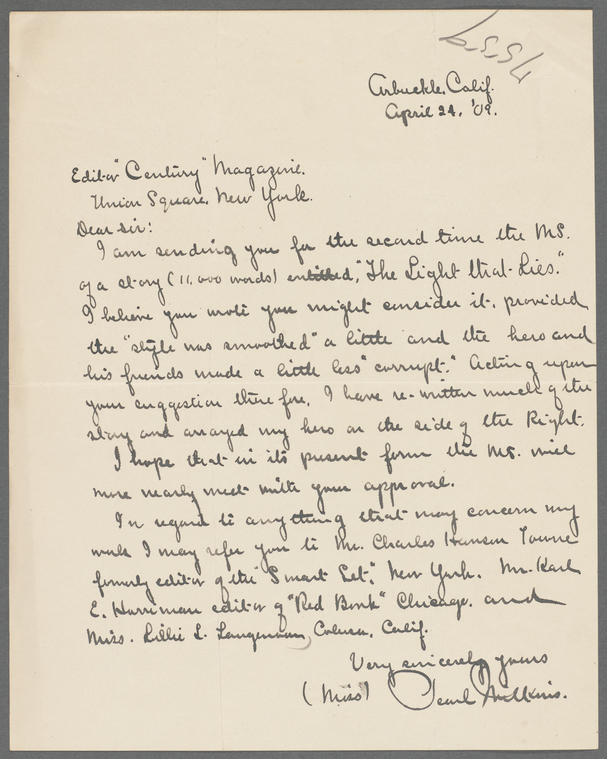 Arbuckle, Calif.
April 24, '09.
Editor "Century" Magazine.
Union Square, New York.
Dear Sir:
I am sending you for the second time the MS.
of a story (11,000 words) entitled, "The Light that Lies."
I believe you wrote you might consider it, provided
the "style was smoothed" a little and the hero and
his friends made a little less "corrupt." Acting upon
your suggestion therefore, I have re-written much of the
story and arrayed my hero on the side of the Right.
I hope that in its present form the MS. will
more nearly meet with your approval.
In regard to anything that may concern my
work I may refer you to Mr. Charles Hanson Towne
formerly editor of the "Smart Set," New York. Mr. Karl
E. Harriman editor of "Red Book" Chicago, and
Miss. Lillie L. Laugenour, Colusa, Calif.
Very sincerely yours
(Miss) Pearl